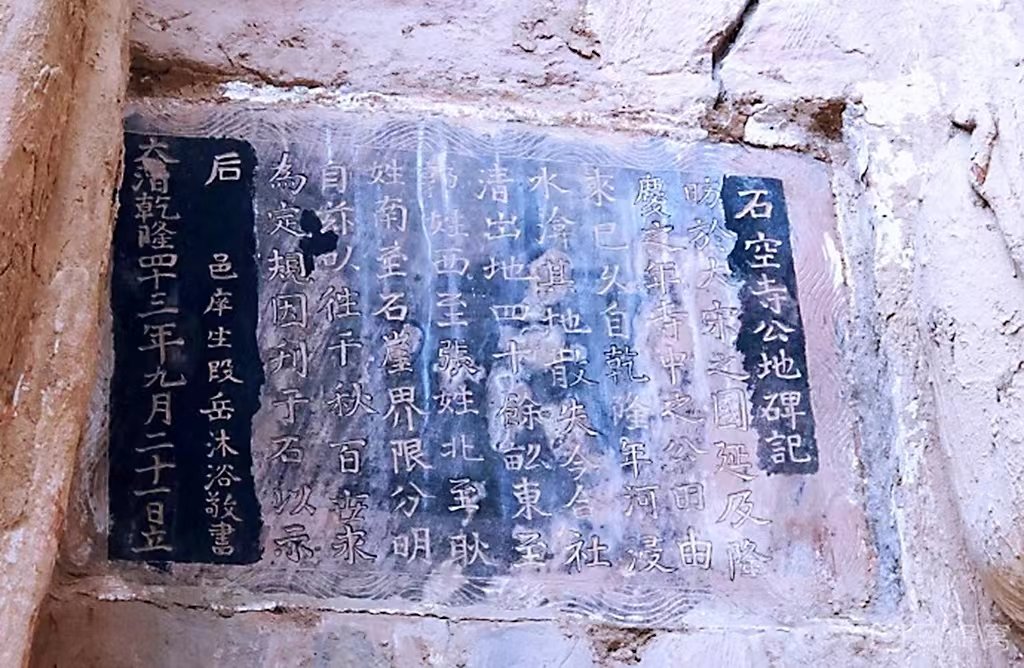 石空寺公地碑記
昉於大宋之國延及隆
慶之年寺中之公田由
來已久自乾隆年河浸
水渰其地散失今合社
清出地四十餘畝東至
姓西至張姓北至耿
姓南至石崖界限分明
自茲以往千秋百世永
為定規因刊于石以示
后 邑庠生段岳沐浴敬書
大清乾隆四十三年九月二十一日立